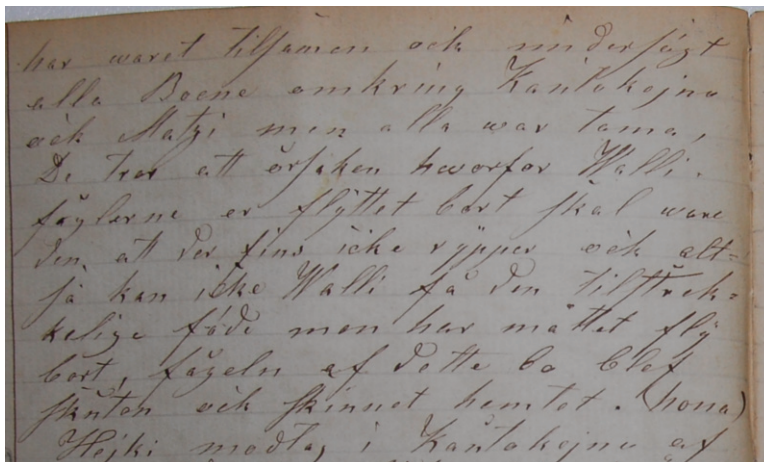 har waret tilsamen och undersögt
alla Boene omkring Kautokejno
och Matzi men alla war toma,
De tror att orsaken hworfor Walli-
fåglerne er flyttet bort skal ware
den att der fins icke rypper och alt-
så kan icke Walli få den tilstrek-
kelige föde men har måttet fly
bort, fågeln af dette bo blef
skuten och skinnet hemtet. (hona)
Hejki modtog i Kautokejno af